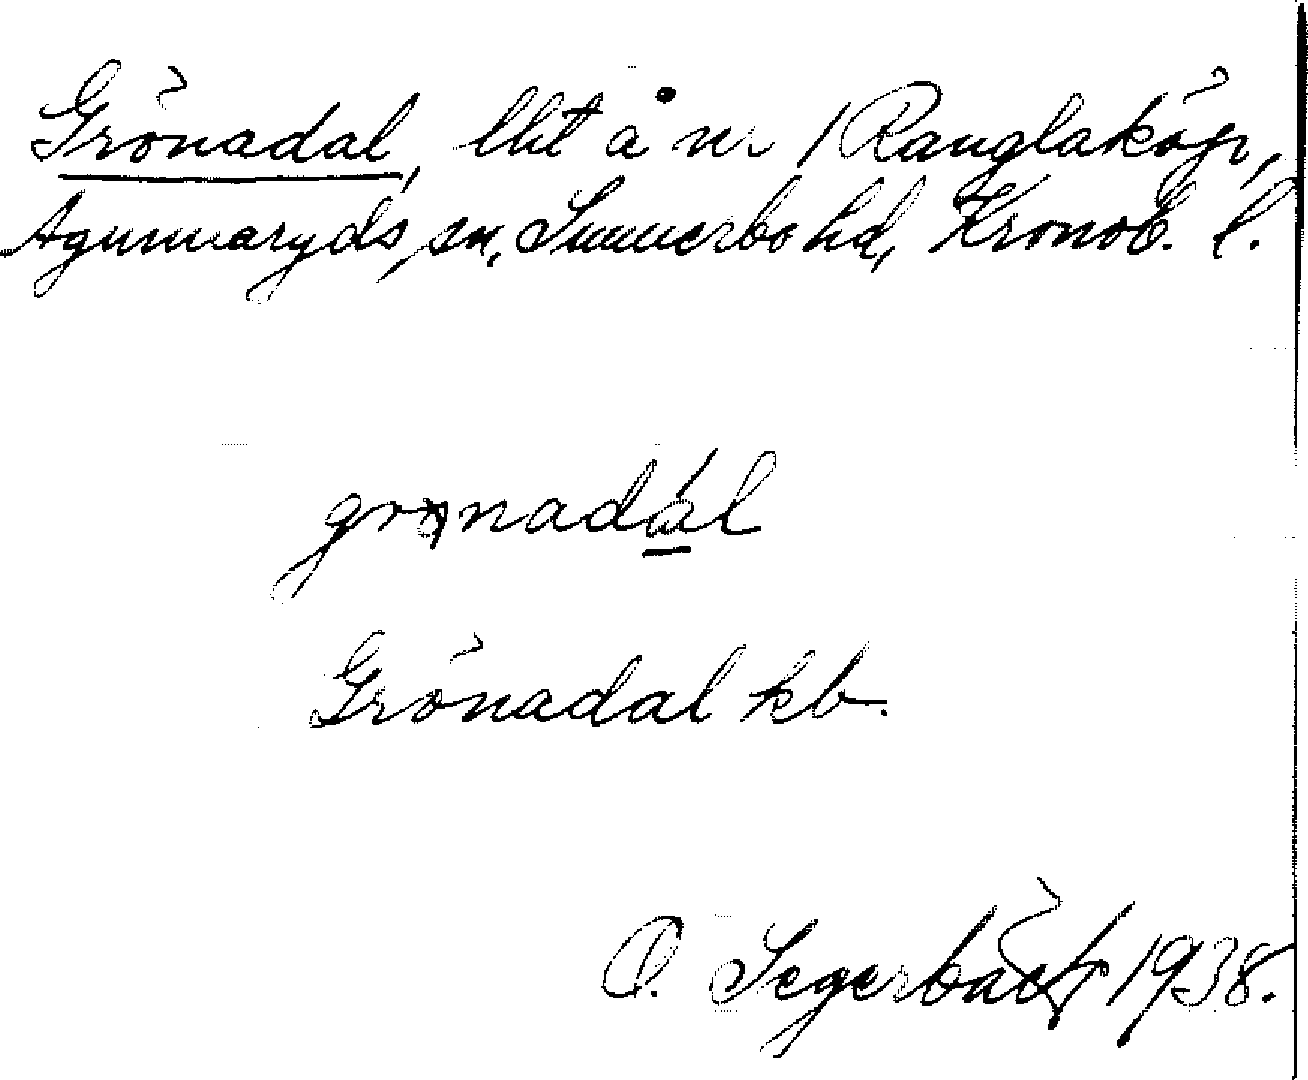 Grönadal, lht å nr 1 Ranglaköp,
Agunnaryds sn, Sunnerbo hd, Kronob. l.
grǫnadál
Grönadal kb.
O. Segerbäck 1938.